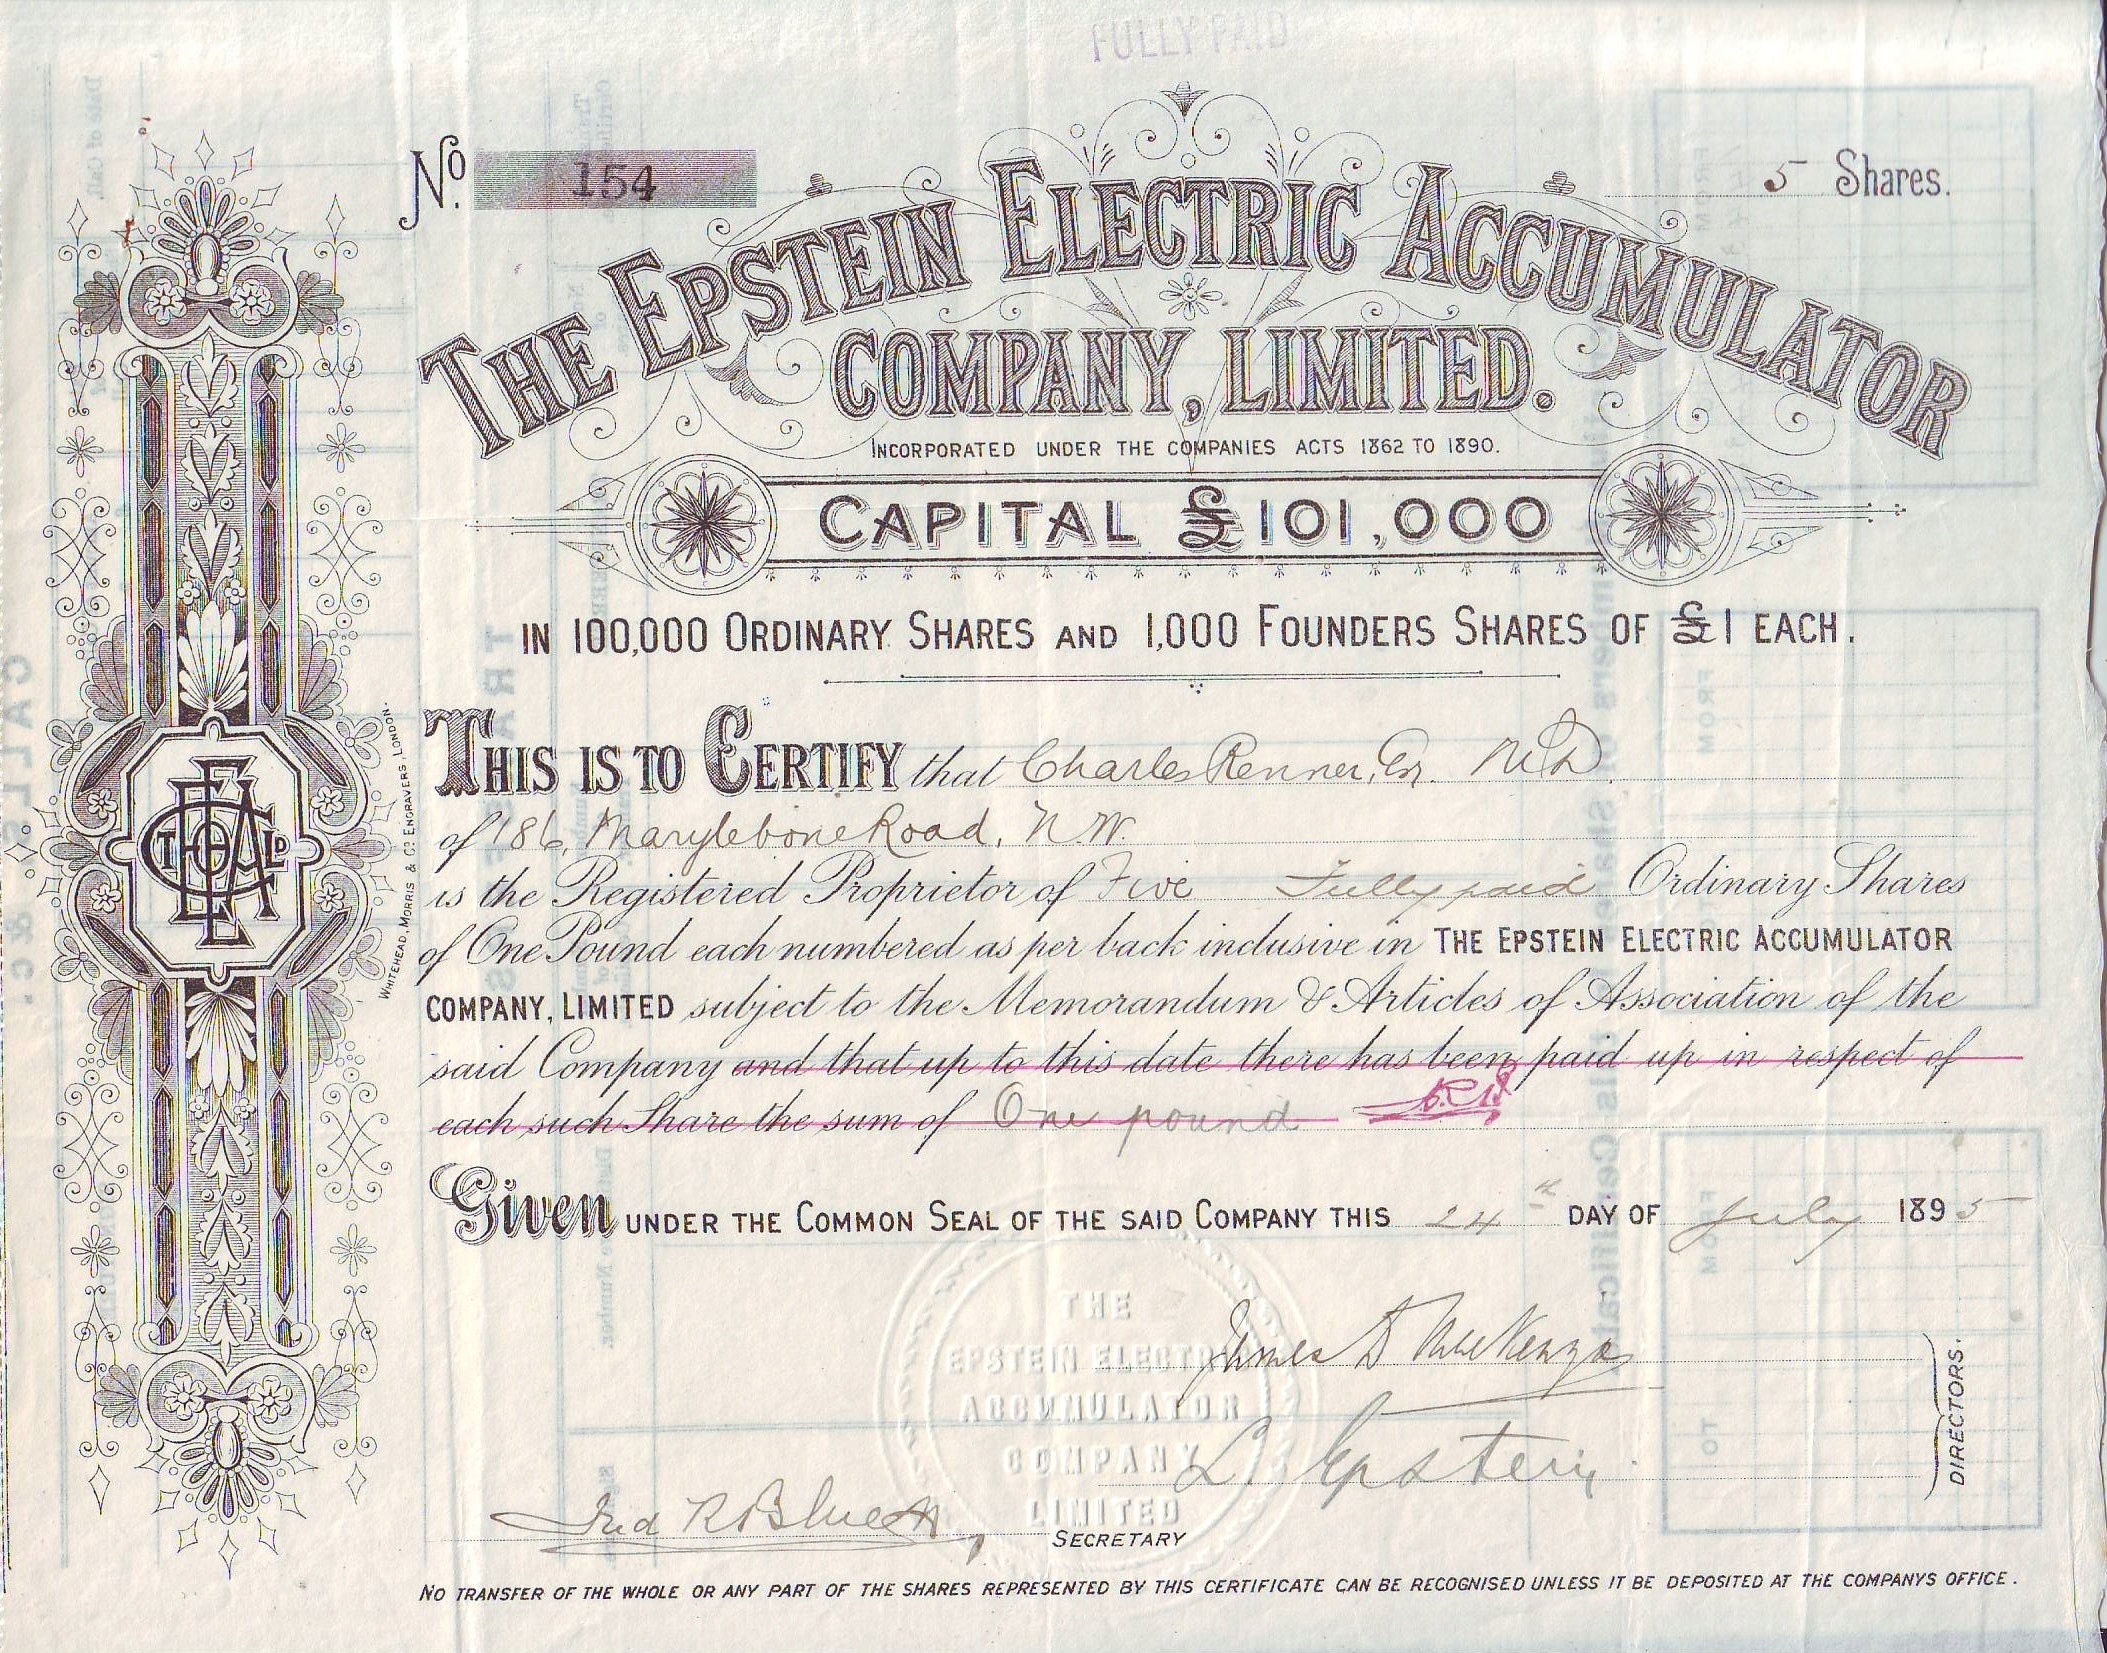 FULLY PAID
No. 154
5 Shares.
THE EPSTEIN ELECTRIC ACCUMULATOR
COMPANY, LIMITED.
INCORPORATED UNDER THE COMPANIES ACTS 1862 TO 1890.
CAPITAL £101,000
IN 100,000 ORDINARY SHARES AND 1,000 FOUNDERS SHARES OF £1 EACH.
THIS IS TO CERTIFY that Charles Renner, Esq. M.D.
of 186, Marylebone Road, N.W.
is the Registered Proprietor of Five Fully paid Ordinary Shares
of One Pound each numbered as per back inclusive in THE EPSTEIN ELECTRIC ACCUMULATOR
COMPANY, LIMITED subject to the Memorandum & Articles of Association of the
said Company and that up to this date there has been paid up in respect of
each such Share the sum of One pound
Given UNDER THE COMMON SEAL OF THE SAID COMPANY THIS 24th DAY OF July 1895
THE
EPSTEIN ELECTRIC
ACCUMULATOR
COMPANY
LIMITED
James D MacKenzie
L. Epstein
DIRECTORS.
Fred R Bluett
SECRETARY
NO TRANSFER OF THE WHOLE OR ANY PART OF THE SHARES REPRESENTED BY THIS CERTIFICATE CAN BE RECOGNISED UNLESS IT BE DEPOSITED AT THE COMPANYS OFFICE.
WHITEHEAD, MORRIS & Co ENGRAVERS LONDON.